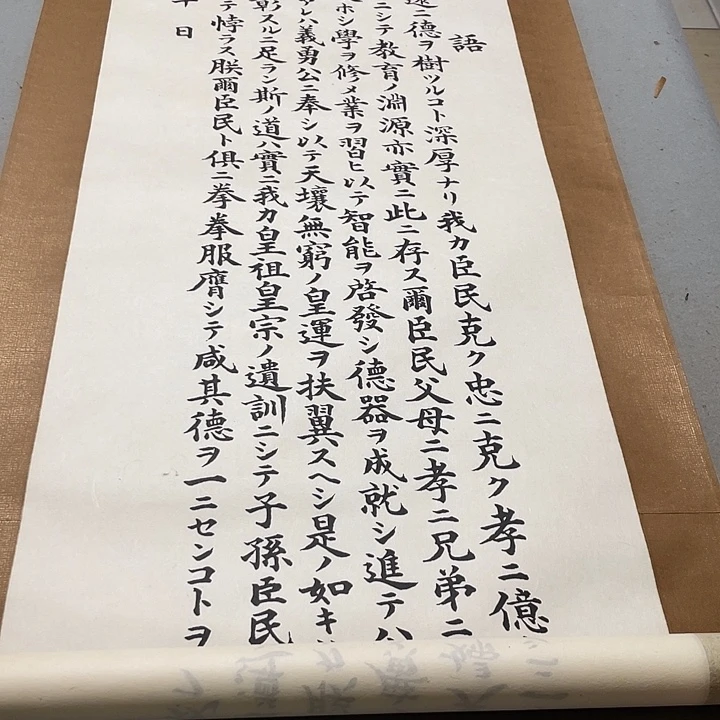 語
遠ニ德ヲ樹ツルコト深厚ナリ我カ臣民克ク忠ニ克ク孝ニ億
ニシテ教育ノ淵源亦實ニ此ニ存ス爾臣民父母ニ孝ニ兄弟ニ
ホシ學ヲ修メ業ヲ習ヒ以テ智能ヲ啓發シ德器ヲ成就シ進テ公
レハ義勇公ニ奉シ以テ天壤無窮ノ皇運ヲ扶翼スヘシ是ノ如キ
彰スルニ足ラン斯ノ道ハ實ニ我カ皇祖皇宗ノ遺訓ニシテ子孫臣民
テ悖ラス朕爾臣民ト倶ニ拳拳服膺シテ咸其德ヲ一ニセンコトヲ
日